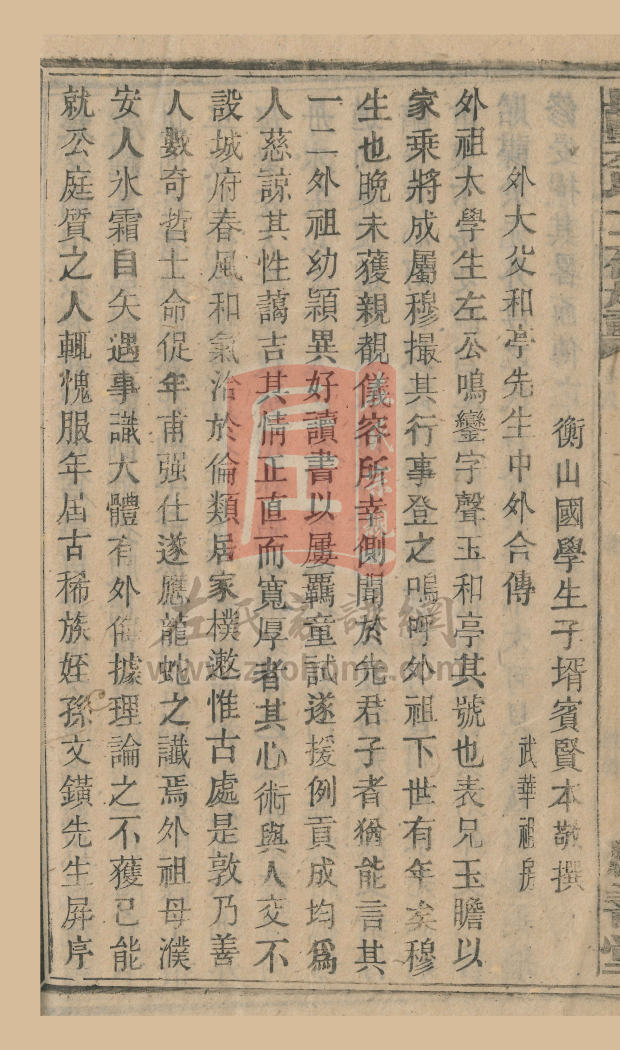 衡山國學生子壻賓賢本敬撰
外大父和亭先生中外合傳
武華祖房
外祖太學生左公鳴鑾字聲玉和亭其號也表兄玉瞻以
家乘將成屬穆撮其行事登之嗚呼外祖下世有年矣穆
生也晚未獲親覩儀容所幸側聞於先君子者猶能言其
一二外祖幼穎異好讀書以屢覊童試遂援例貢成均爲
人慈諒其性藹吉其情正直而寬厚者其心術與人交不
設城府春風和氣洽於倫類居家樸遬惟古處是敦乃善
人數奇哲士命促年甫强仕遂應龍蛇之讖焉外祖母濮
安人氷霜自矢遇事識大體有外侮據理論之不獲已能
就公庭質之人輒愧服年屆古稀族姪孫文鑛先生屛序
左氏家譜網
www.zuohome.com